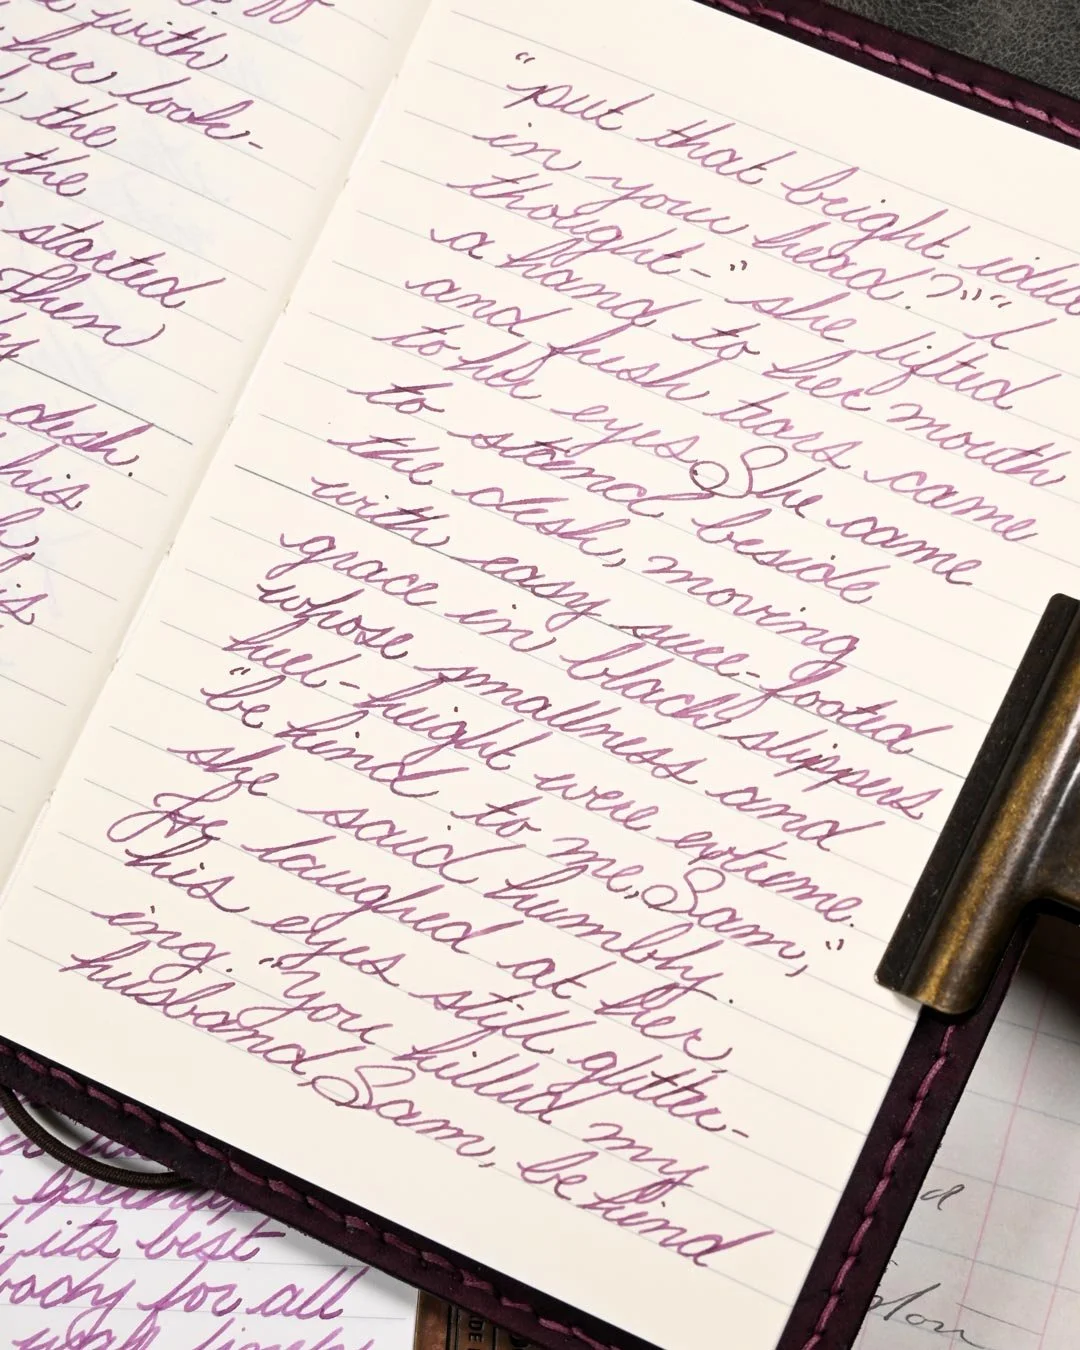 with
her look-
the
the
started
Then
desk.
his
is
"put that bright idea
in your head?" "I
thought-" she lifted
a hand to her mouth
and fresh tears came
to her eyes She came
to stand beside
the desk, moving
with easy sure-footed
grace in black slippers
whose smallness and
heel-height were extreme.
"be kind to me, Sam,"
she said humbly.
He laughed at her,
his eyes still glitter-
ing. "You killed my
husband, Sam, be kind
its best
body for all